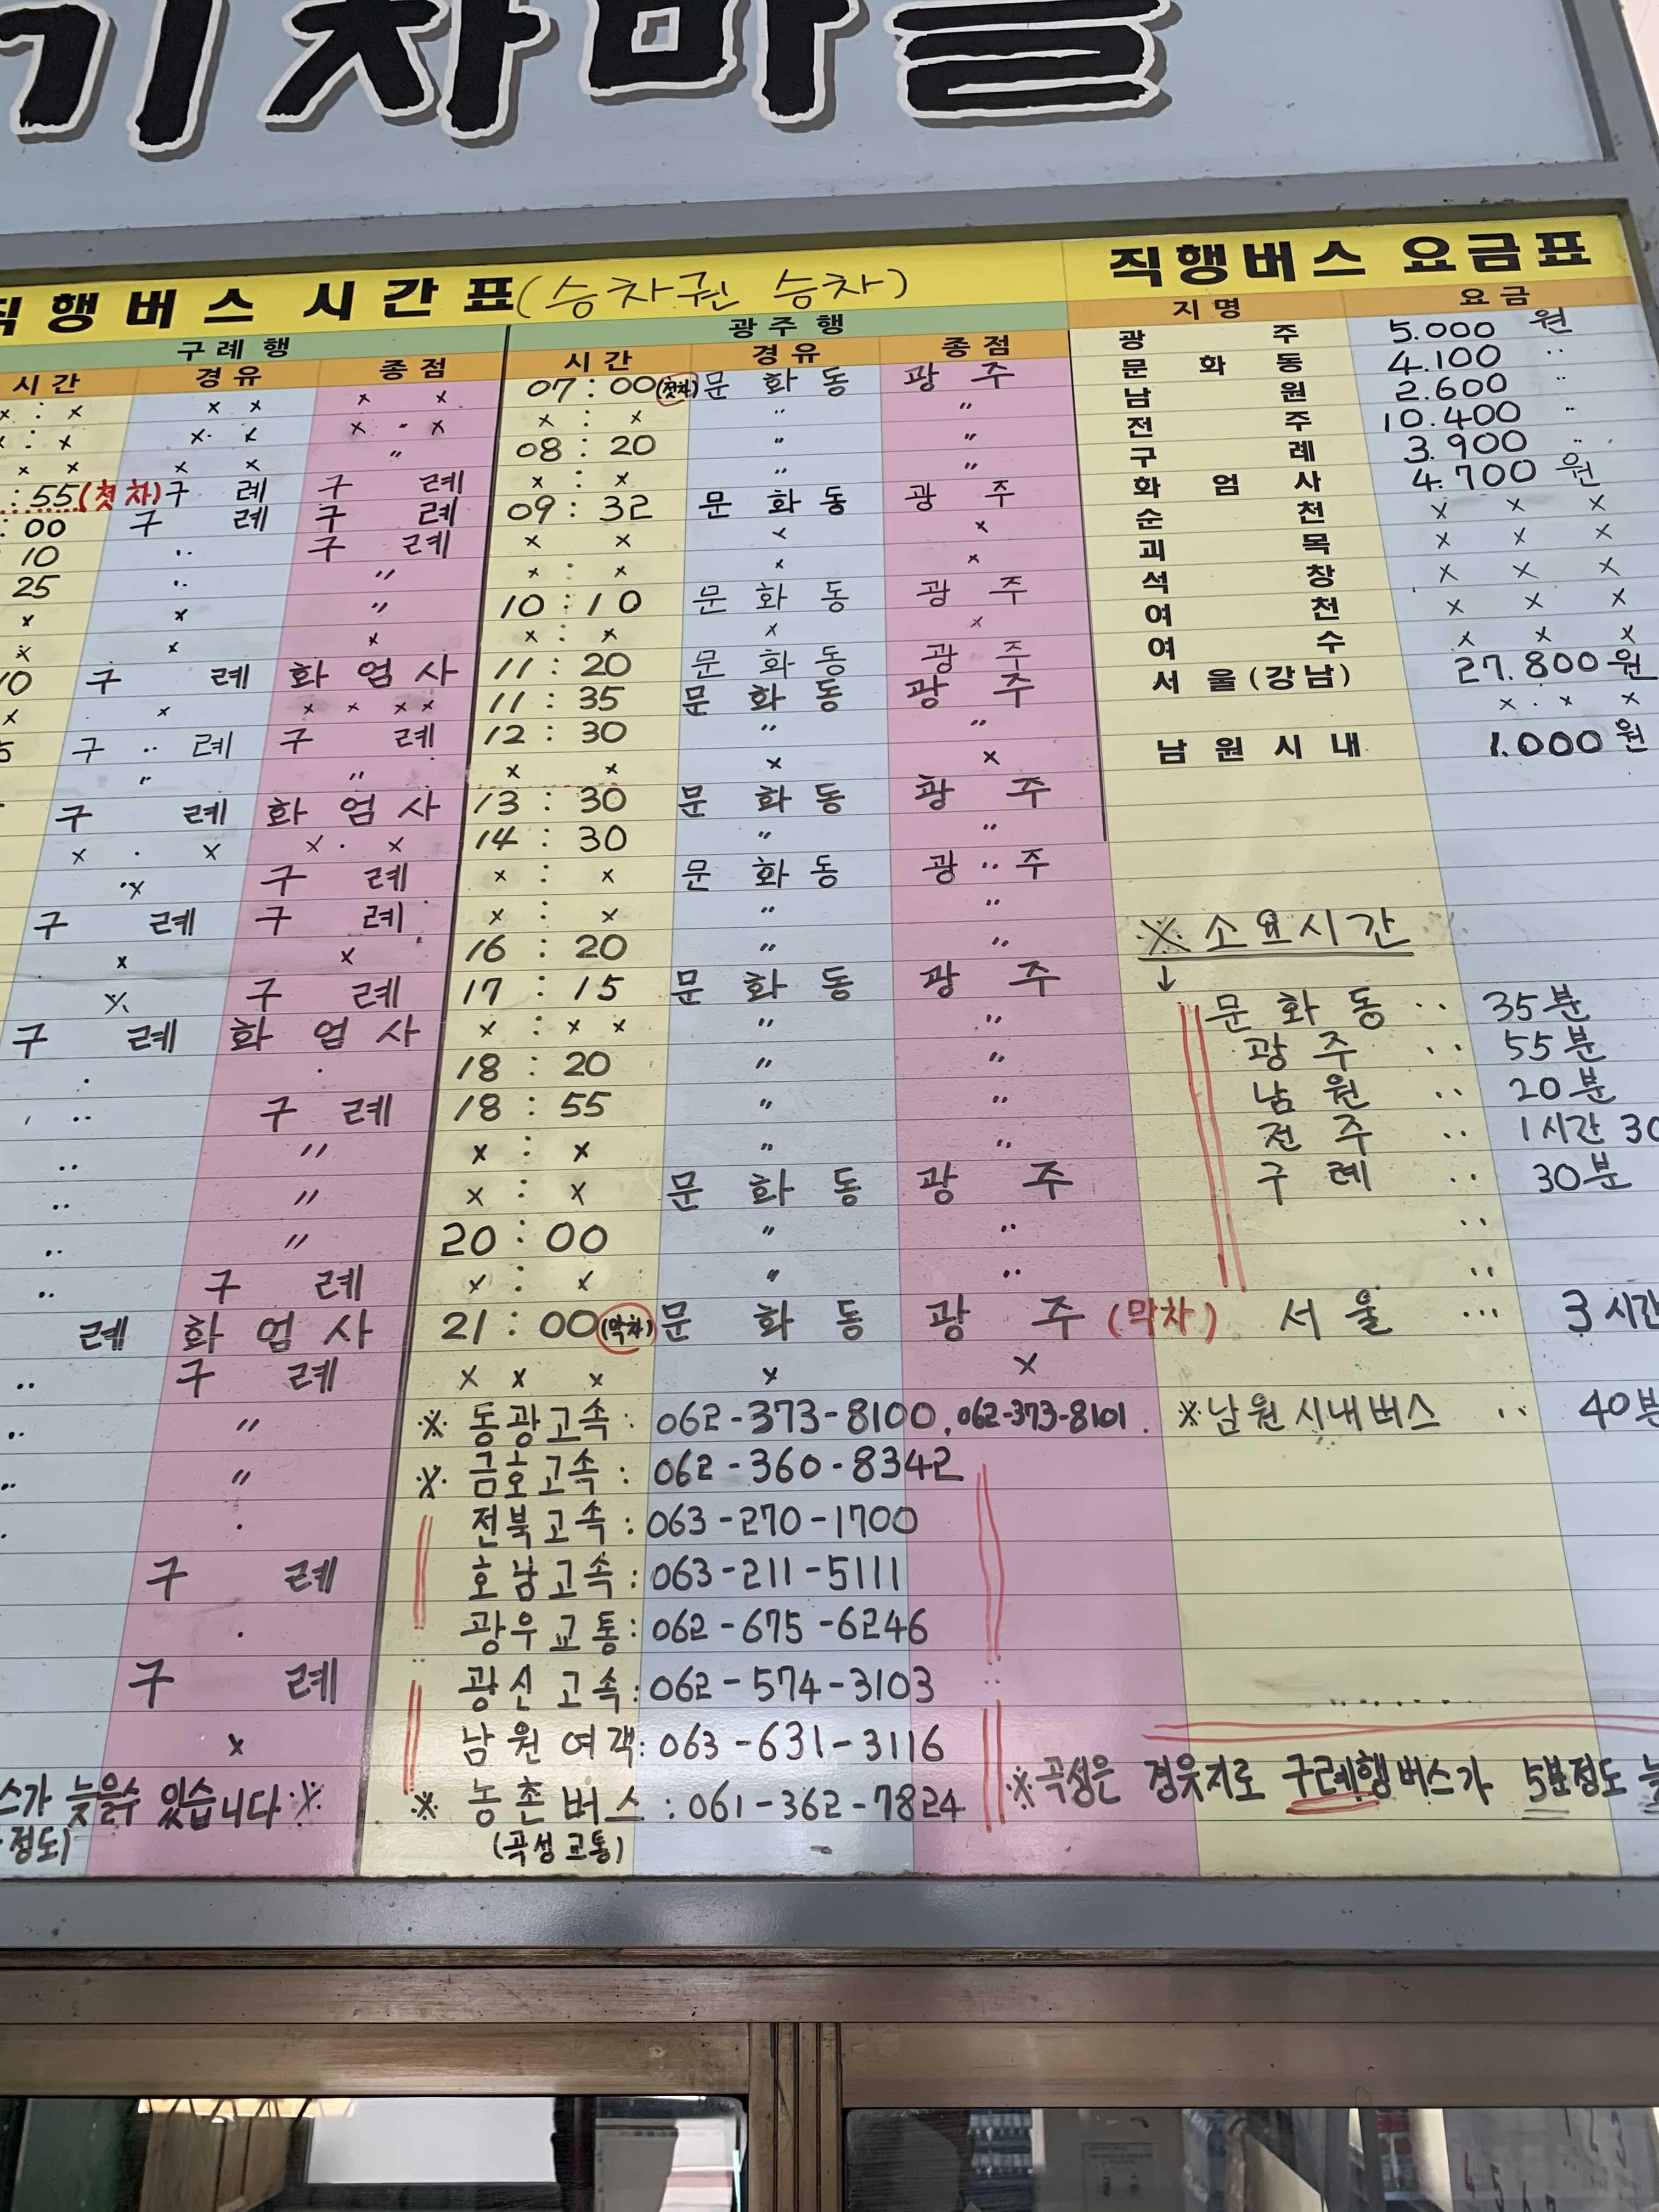 기차마을
직행버스 시간표(승차권 승차)
직행버스 요금표
구례행
광주행
지명 요금
시간 경유 종점
시간 경유 종점
× : × × × × ×
: × ×· × × - ×
× × × × "
:55(첫차) 구 례 구 례
:00 구 례 구 례
10 ·· 구 례
25 ·· "
× × "
× × ×
10 구 례 화 엄 사
× × × × × ×
5 구 ·· 례 구 례
" "
구 례 화 엄 사
× · × ×· ×
·× 구 례
구 례 구 례
× ×
× 구 례
구 례 화 엄 사
· ·
·· 구 례
·· "
·· "
·· "
·· 구 례
례 화 엄 사
·· 구 례
·· "
·· "
· ·
구 례
·
구 례
×
스가 늦을수 있습니다 ※
정도)
07:00(첫차) 문 화 동 광 주
× : × " "
08:20 " "
× : × " "
09:32 문 화 동 광 주
× × × ×
× : × × ×
10:10 문 화 동 광 주
× : × × ×
11:20 문 화 동 광 주
11:35 문 화 동 광 주
12:30 " "
× × × ×
13:30 문 화 동 광 주
14:30 " "
× : × 문 화 동 광 ·· 주
× : × " "
16:20 " "
17:15 문 화 동 광 주
× : × × " "
18:20 " "
18:55 " "
× : × " "
× : × 문 화 동 광 주
20:00 " "
× : × " "
21:00(막차) 문 화 동 광 주 (막차)
× × × × ×
※ 동광고속: 062-373-8100, 062-373-8101.
※ 금호고속: 062-360-8342
전북고속: 063-270-1700
호남고속: 063-211-5111
광우교통: 062-675-6246
광신고속: 062-574-3103
남원여객: 063-631-3116
※ 농촌버스: 061-362-7824
(곡성교통)
광 주 5.000 원
문 화 동 4.100 ··
남 원 2.600 ··
전 주 10.400 ··
구 례 3.900 ··
화 엄 사 4.700 원
순 천 × × ×
괴 목 × × ×
석 창 × × ×
여 천 × × ×
여 수 × × ×
서 울(강남) 27.800원
× · × ×
남 원 시 내 1.000원
※ 소요시간
↓
문 화 동 ·· 35분
광 주 ·· 55분
남 원 ·· 20분
전 주 ·· 1시간 30
구 례 ·· 30분
··
··
서 울 ··· 3시간
※ 남원시내버스 ·· 40분
※곡성은 경유지로 구례행버스가 5분정도 늦